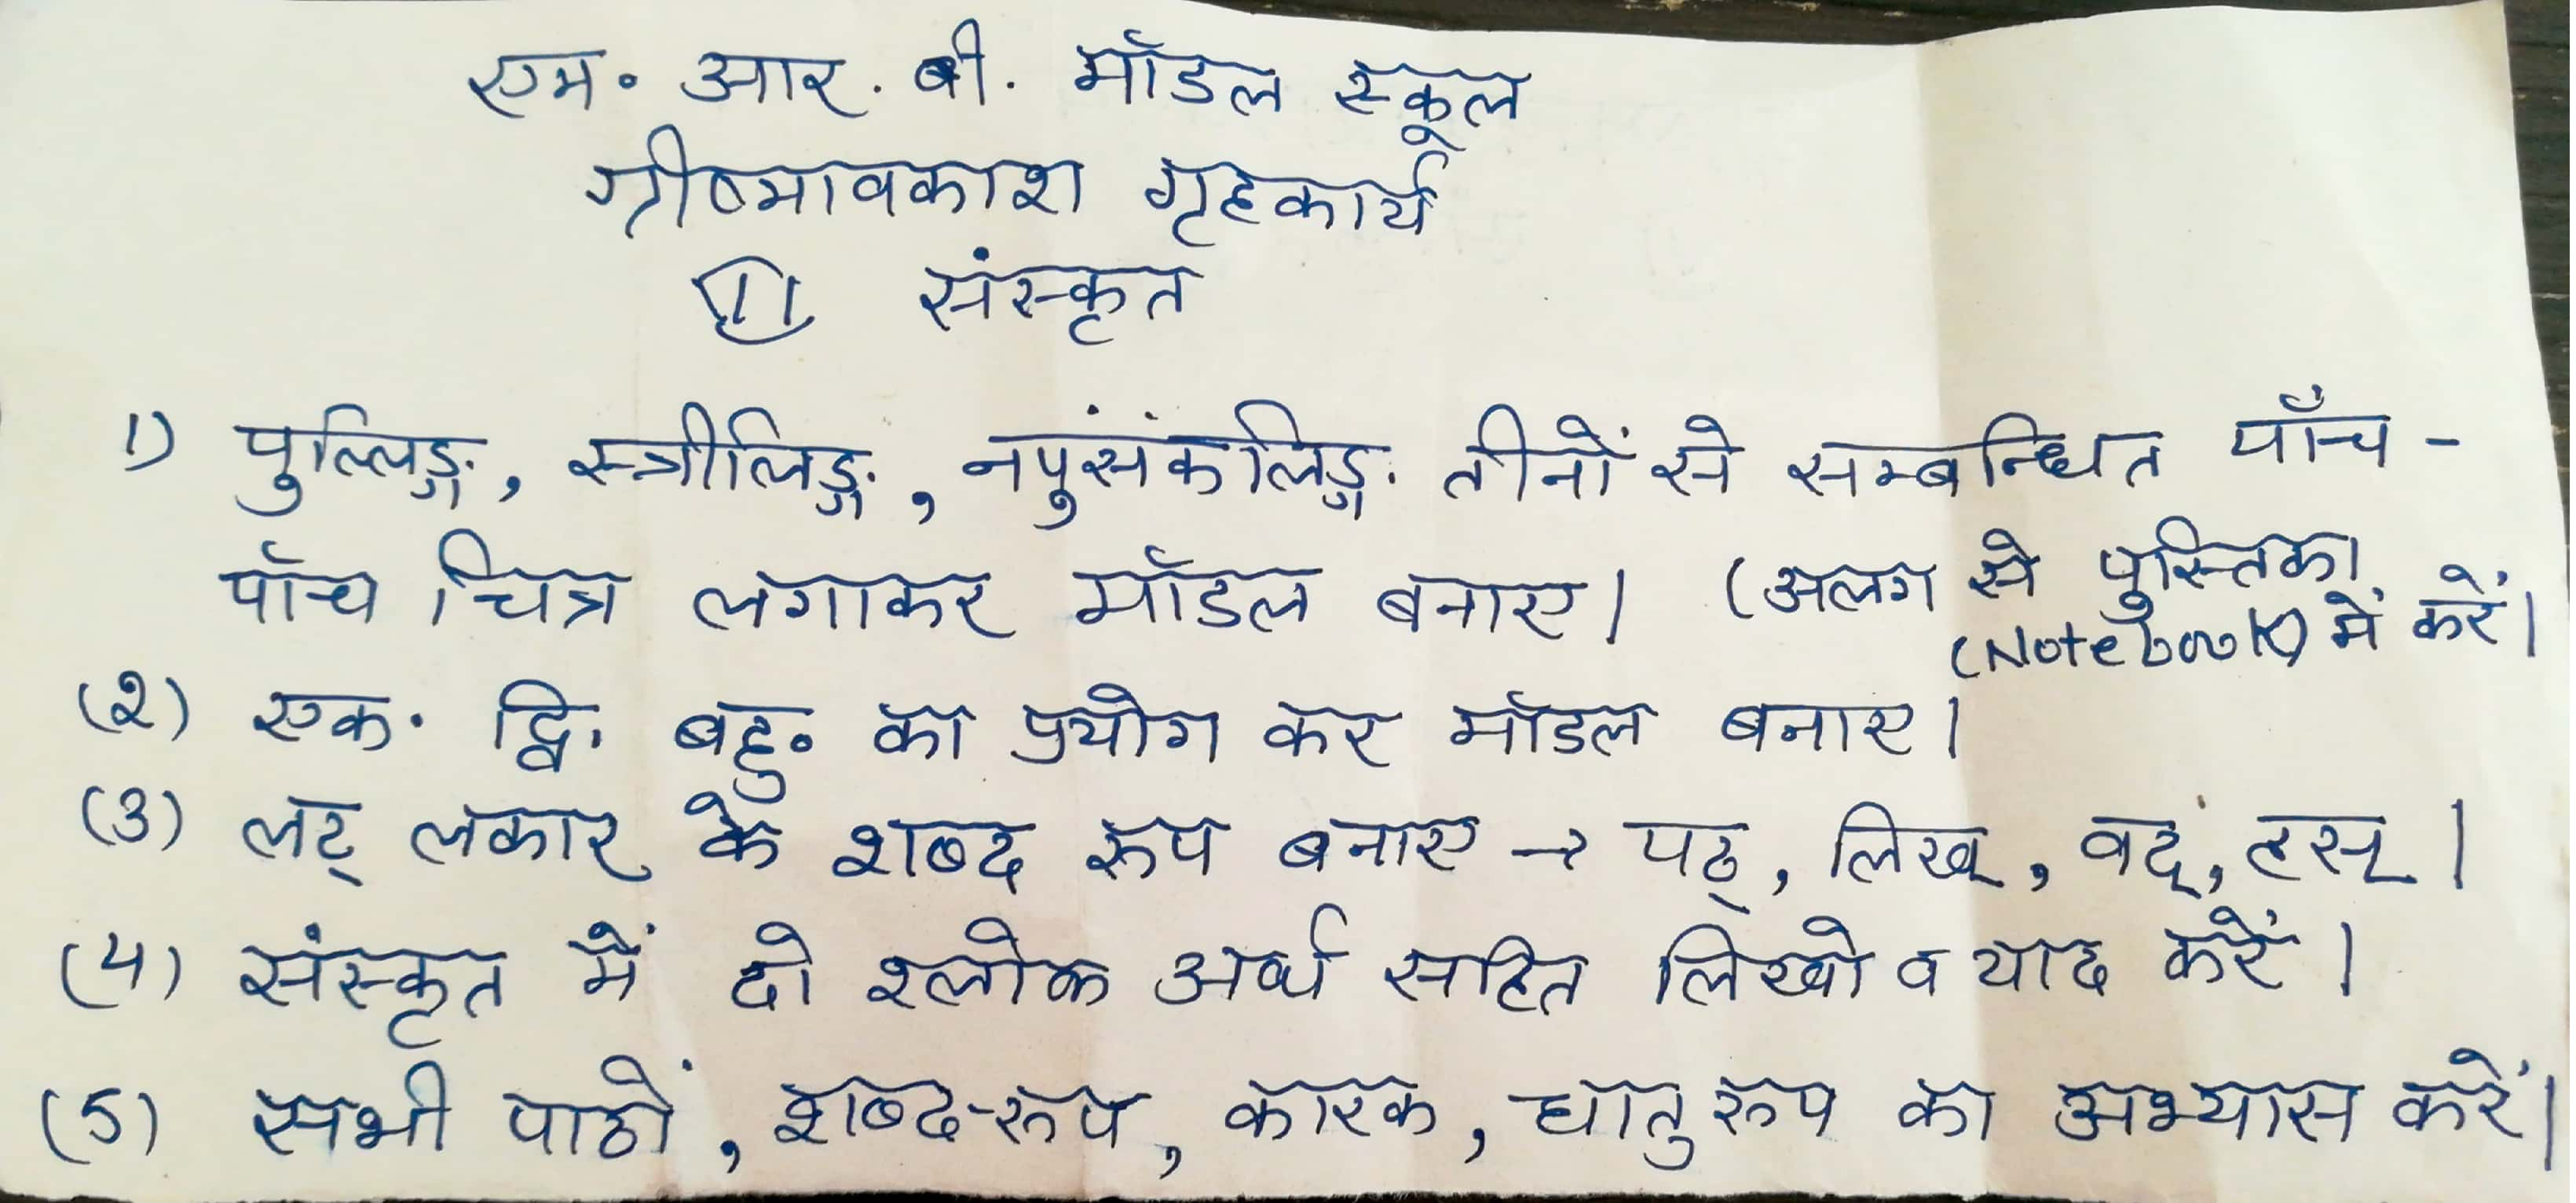 एम. आर. बी. मॉडल स्कूल
ग्रीष्मावकाश गृहकार्य
संस्कृत
1) पुल्लिङ्ग, स्त्रीलिङ्ग, नपुसंकलिङ्ग तीनों से सम्बन्धित पाँच -
पाँच चित्र लगाकर मॉडल बनाए। (अलग से पुस्तिका
(Notebook) में करें।
(२) एक. द्वि. बहु. का प्रयोग कर मॉडल बनाए।
(3) लट् लकार के शब्द रूप बनाए → पठ्, लिख्, वद्, हस्।
(4) संस्कृत में दो श्लोक अर्थ सहित लिखो व याद करें।
(5) सभी पाठों, शब्द-रूप, कारक, धातु रूप का अभ्यास करें।